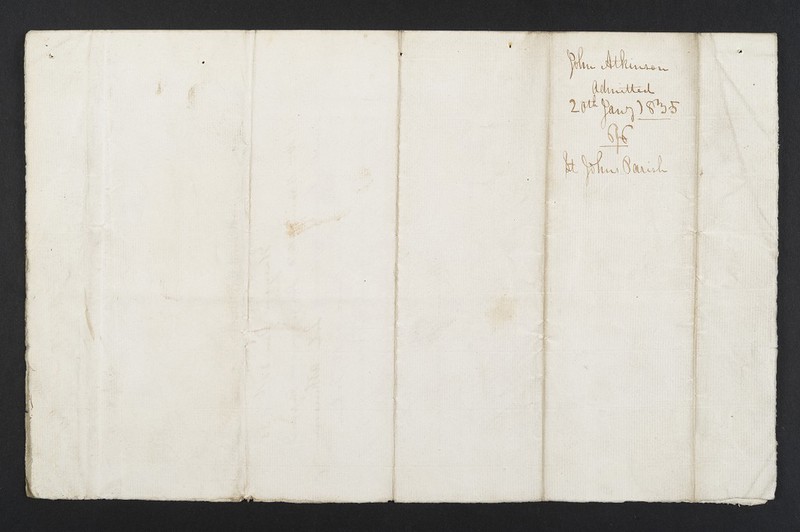 John Atkinson
Admitted
20th Jany 1835
St Johns Parish